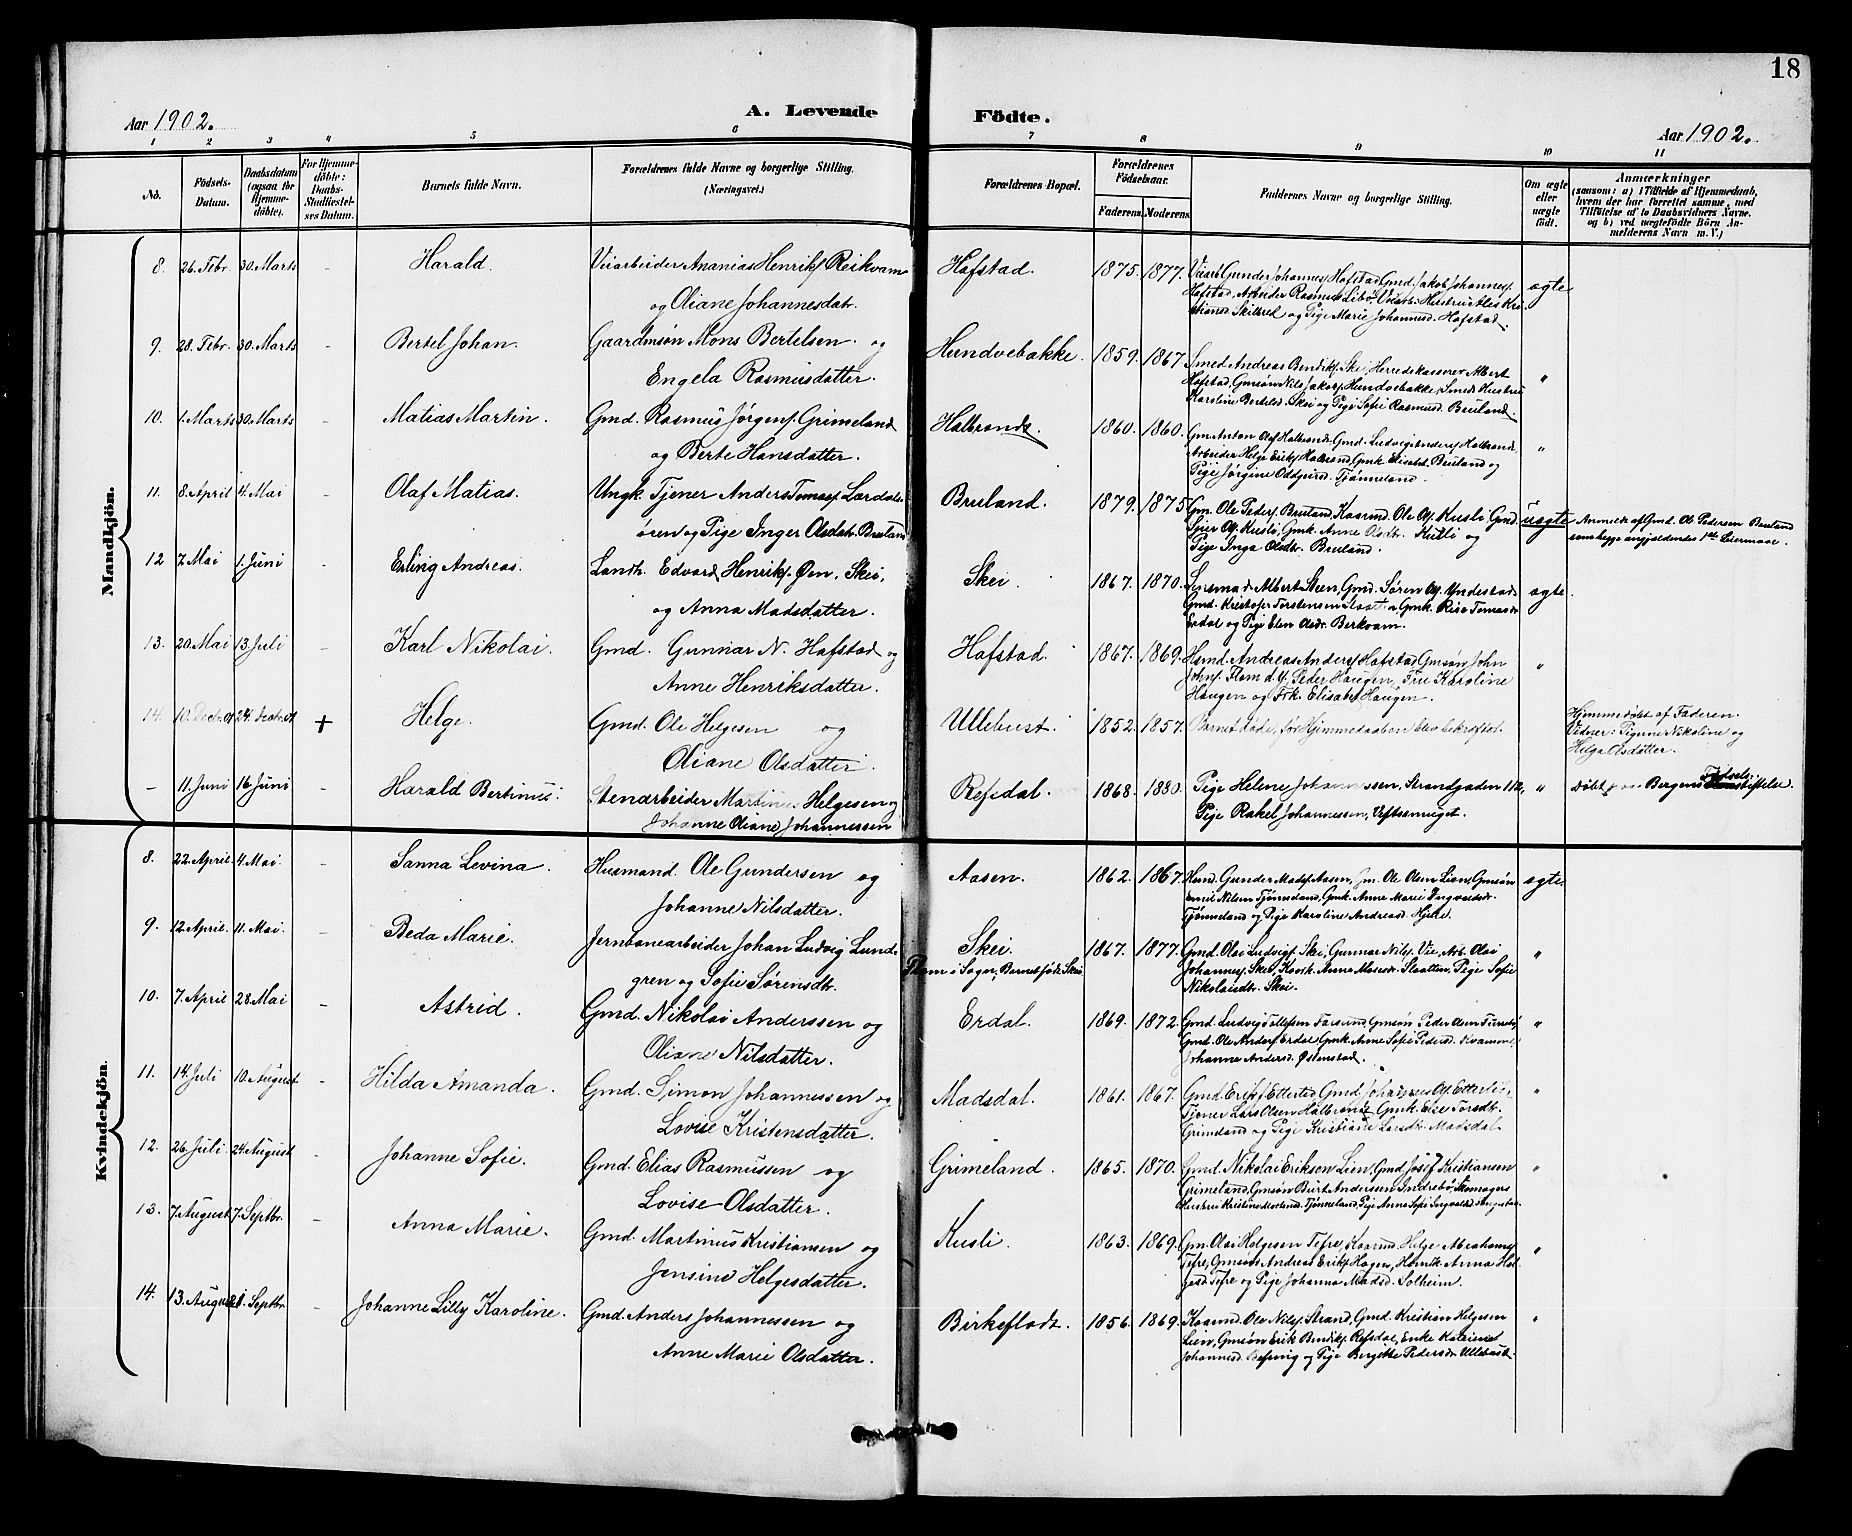 18
Aar 1902.
A. Levende
Födte.
Aar 1902.
1 2 3 4 5 6 7 8 9 10 11
No.
Födsels-Datum.
Daabsdatum (ogsaa for Hjemme-döbte).
For Hjemme-döbte: Daabs-Stadfæstel-ses Datum.
Barnets fulde Navn.
Forældrenes fulde Navne og borgerlige Stilling. (Næringsvei.)
Forældrenes Bopæl.
Forældrenes Födselsaar.
Faderens.
Moderens.
Faddernes Navne og borgerlige Stilling.
Om ægte eller uægte födt.
Anmærkninger
(saasom: a) i Tilfælde af Hjemmedaab, hvem der har forrettet samme, med Tilföielse af to Daabsvidners Navne, og b) ved uægtefödte Börn An-melderens Navn m. V.)
Mandkjön.
8. 26. Febr. 30. Marts - Harald. Veiarbeider Ananias Henriks. Reikvam
og Oliane Johannesdatr.
Hafstad. 1875. 1877. Veiarb. Gunder Johannes. Hafstad, Gmd. Jakob Johannes.
Hafstad, Arbeider Rasmus Libø, Veiarb. Hustru Ales Kri-
stiansd. Skilbred og Pige Marie Johannesd. Hafstad.
ægte
9. 28. Febr. 30. Marts - Bertel Johan. Gaardmsøn Mons Bertelsen og
Engela Rasmusdatter.
Hundvebakke. 1859. 1867. Smed Andreas Bendiks. Skei, Herredskasserer Albert
Hafstad, Gmsøn Nils Jakobs. Hundvebakke, Smeds Hustru
Karoline Bertelsd. Skei og Pige Sofie Rasmusd. Bruland.
"
10. 1. Marts 30. Marts - Matias Martin. Gmd. Rasmus Jørgens. Grimeland
og Berte Hansdatter.
Halbrands. 1860. 1860. Gm. Anton Olaf Halbrands, Gmd. Ludvig Anders. Halbrand,
Arbeider Helge Eriks. Halbrand, Gmk. Elisabet Bruland og
Pige Jørgine Oddgeirsd. Tjønneland.
"
11. 8. April 4. Mai - Olaf Matias. Ungk. Tjener Anders Tomas. Lærdals-
øren og Pige Inger Olsdatr. Bruland
Bruland. 1879. 1875. Gm. Ole Peders. Bruland, Kaarmd. Ole Ols. Kusli, Gmd.
Seier Ols. Kusli, Gmk. Anne Olsdtr. Kusli og
Pige Inga Olsdtr. Bruland.
uægte
Anmeldt af Gmd. Ole Pedersen Bruland
som begge angjældendes 1ste Leiermaal.
12 7. Mai 1. Juni - Erling Andreas. Landh. Edvard Henriks. Øen, Skei,
og Anna Madsdatter.
Skei. 1867. 1870. Lensmand Albert Steen, Gmd. Søren Ols. Yndestad,
Gmd. Kristofer Torstensen Slaatten, Gmk. Rise Tomasdr.
Erdal og Pige Elen Olsdr. Berkvam.
ægte
13. 20. Mai 13. Juli - Karl Nikolai. Gmd. Gunnar N. Hafstad og
Anne Henriksdatter.
Hafstad. 1867. 1869. Hsmd. Andreas Anders. Hafstad, Gmsøn John
Johns. Flam d. Y., Peder Haugen, Fru Karoline
Haugen og Frk. Elisabet Haugen.
"
14. 10. Decbr. 01 24. Decbr. 01 + Helge. Gmd. Ole Helgesen og
Oliane Olsdatter.
Ullebust. 1852. 1857. Barnet døde, før Hjemmedaaben blev bekræftet.
Hjemmedøbt af Faderen.
Vidner: Pigerne Nikoline og
Helga Olsdatter.
- 11. Juni 16. Juni Harald Bertinus. Stenarbeider Martinus Helgesen og
Johanne Oliane Johannessen
Refsdal. 1868. 1880. Pige Helene Johannessen, Strandgaden 112,
Pige Rakel Johannessen, Veftssmuget.
" Døbt paa Bergens Fødselsstiftelse.
Kvindekjön.
8. 22. April. 4. Mai. - Sanna Levina. Husmand. Ole Gundersen og
Johanne Nilsdatter.
Aasen. 1862. 1867. Hsmd. Gunder Mads. Aasen, Gm. Ole Olsen Lien, Gmsøn
Emil Nilsen Tjønneland, Gmk. Anne Marie Ingvaldsdr.
Tjønneland og Pige Karoline Andreasd. Hjelle.
ægte
9. 12. April. 11. Mai. - Beda Marie. Jernbanearbeider Johan Ludvig Lund-
gren og Sofie Sørensdtr.
Skei.
Flam i Sogn, Barnet født Skei
1867. 1877. Gmd. Olai Ludvigs. Skei, Gunnar Nils. Vie, Arb. Olai
Johannes. Skei, Kaark. Anna Mosesdr. Slaatten, Pige Sofie
Nikolaidtr. Skei.
"
10. 7. April 28. Mai - Astrid. Gmd. Nikolai Anderssen og
Oliane Nilsdatter.
Erdal. 1869. 1872. Gmd. Ludvig Tollefsen Farsund, Gmsøn Peder Olsen
Gmd. Ole Anders. Erdal, Gmk. Anne Sofie Pedersd. Kvamme
Johanne Andersd. Østenstad.
"
11. 14. Juli 10. August - Hilda Amanda. Gmd. Simon Johannessen og
Lovise Kristensdatter.
Madsdal. 1861. 1867. Gmd. Erik Ettertid, Gmd. Johannes Ols.
Tjener Lars Olsen Halbrand, Gmk. Else Torsdtr.
Grimeland og Pige Kristiane Larsdtr. Madsdal.
"
12. 26. Juli. 24. August - Johanne Sofie. Gmd. Elias Rasmussen og
Lovise Olsdatter.
Grimeland. 1865. 1870. Gmd. Nikolai Eriksen Lien, Gmd. Josef Kristiansen
Grimeland, Gmsøn Burt Andersen Indrebø, Skomagers
Hustru Kristine Mortensd. Tjønneland, Pige Anna Sofie Ingvaldsd.
"
13. 7. August 7. Septbr. - Anna Marie. Gmd. Martinus Kristiansen og
Jensine Helgesdatter.
Kusli. 1863. 1869. Gm. Olai Helgesen Tefre, Kaarmd. Helge Abrahams.
Tefre, Gmsøn Andreas Eriks. Hagen, Hsmk. Anna Hel-
gesd. Tefre og Pige Johanna Madsd. Solheim.
"
14. 13. August 21. Septbr. - Johanne Lilly Karoline. Gmd. Anders Johannessen og
Anne Marie Olsdatter.
Birkeflodt. 1856. 1869. Kaarmd. Ole Nils. Strand, Gmd. Kristian Helgesen
Lien, Gmsøn Erik Bendiks. Refsdal, Enke
Johannesd. og Pige Bergitte Pedersdr. Ullebust.
"